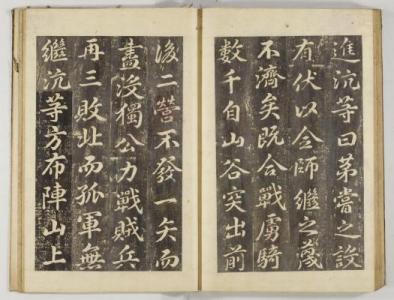 進沆等曰第嘗之設
有伏以全師繼之蔑
不濟矣既合戰虜騎
數千自山谷突出前
後二營不發一矢而
盡沒獨公力戰賊兵
再三敗北而孤軍無
繼沆等方布陣山上